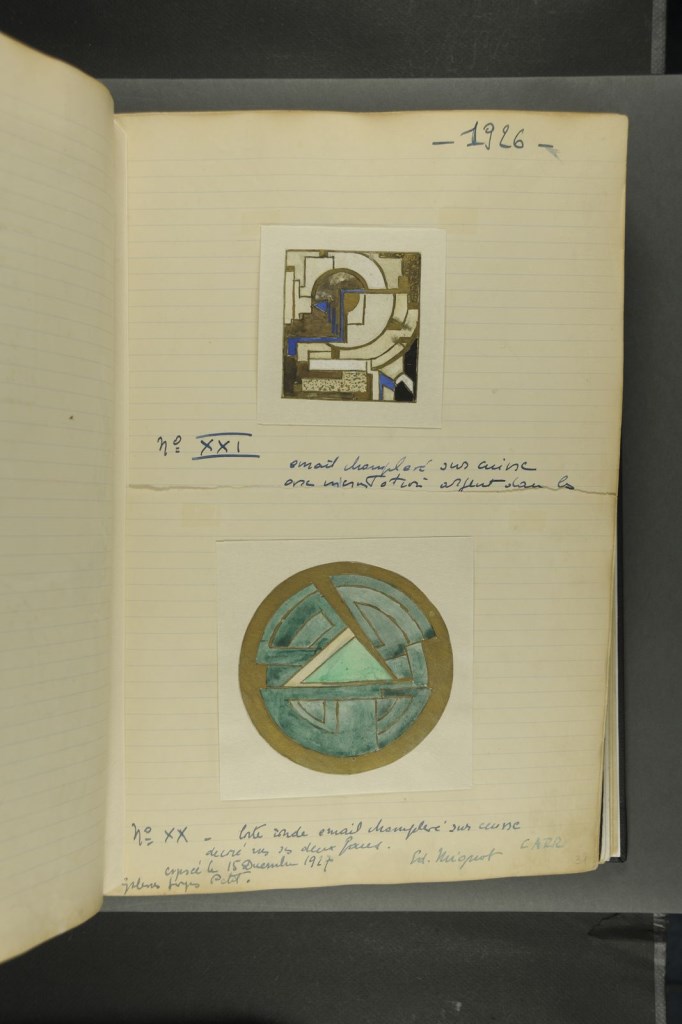 - 1926 -
No XXI
email champlevé sur cuivre
avec incrustation argent dans les
No XX - boîte ronde email champlevé sur cuivre
décoré sur ses deux faces.
exposé le 15 Decembre 1927
galeries Georges Petit.
Ed. Mignot
CARR